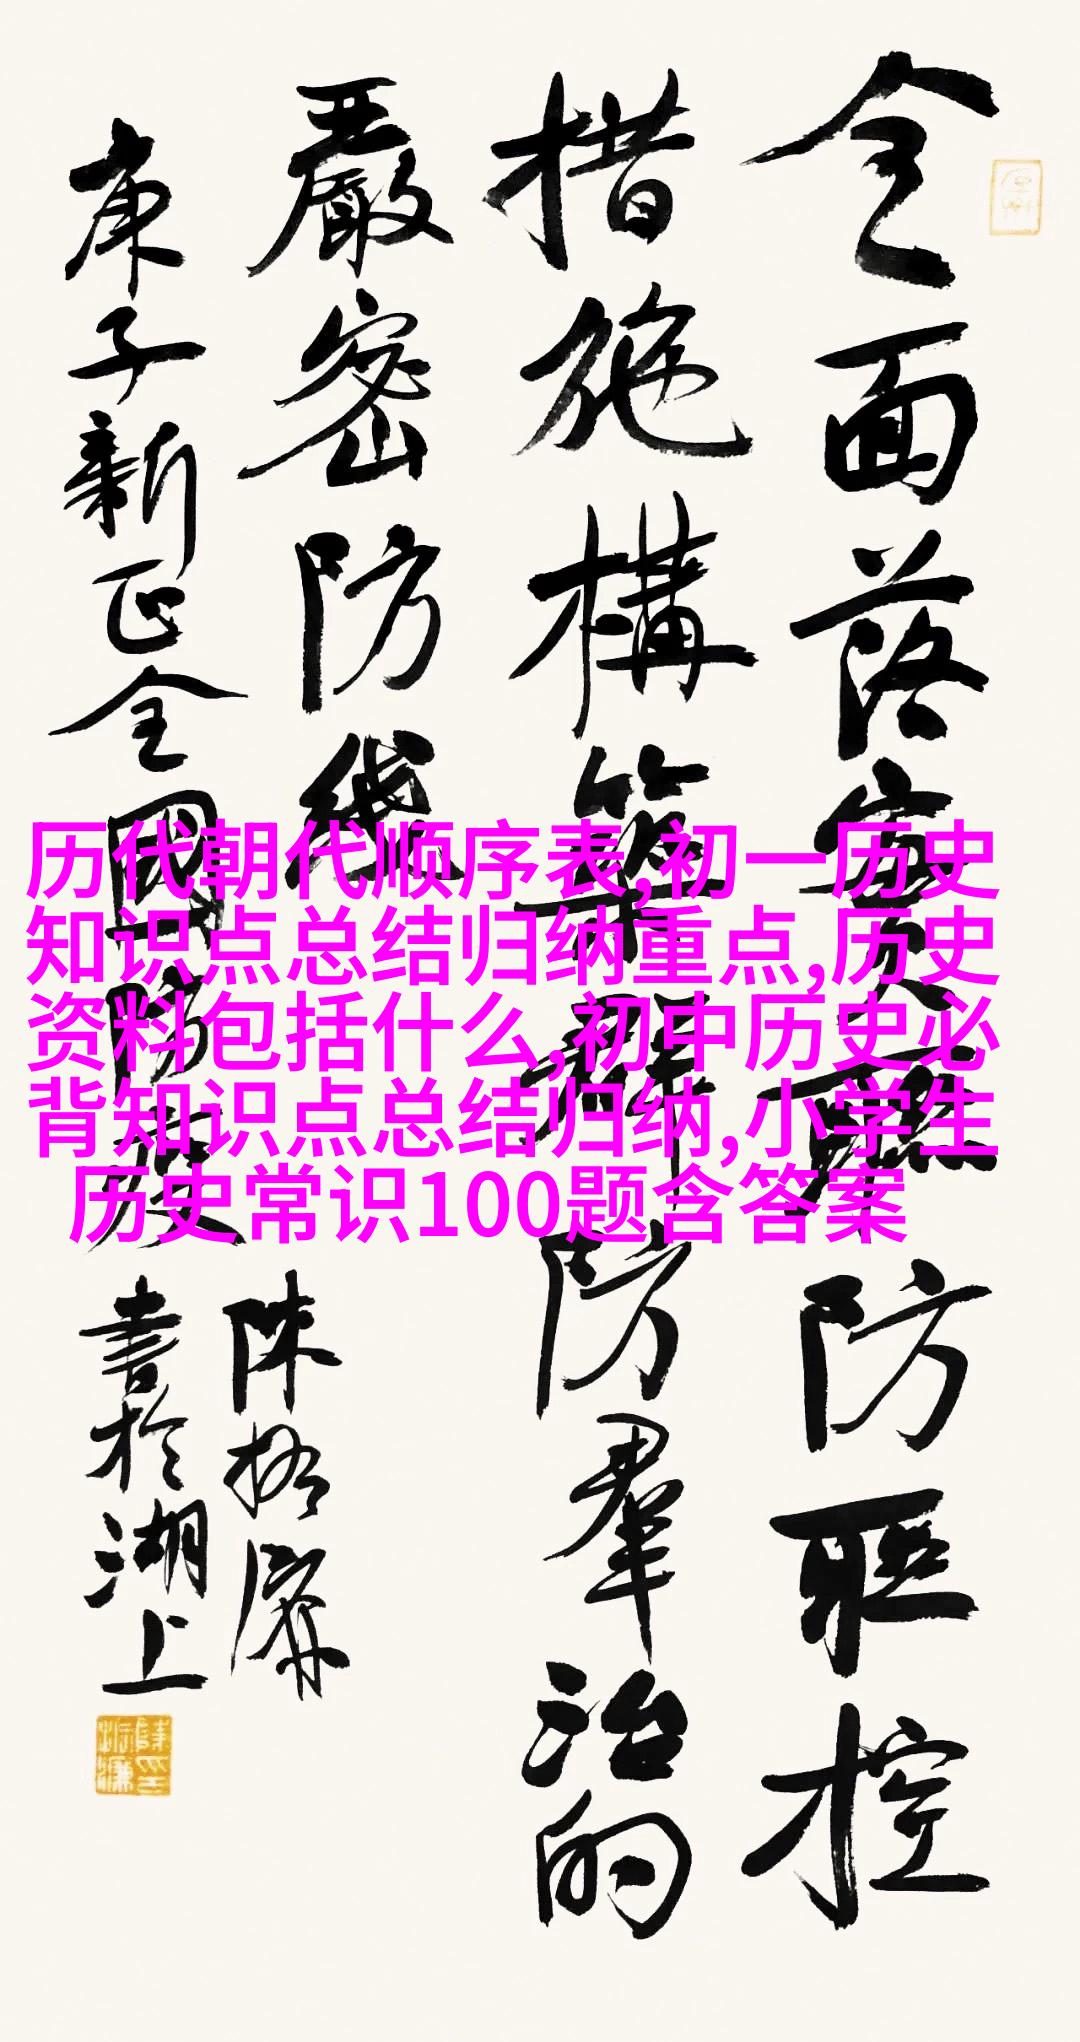 全面落實聯防聯控
措施構築群防羣治的
嚴密防线
庚子新正全國防疫
陳振濂
書於湖上
历代朝代顺序表,初一历史
知识点总结归纳重点,历史
资料包括什么,初中历史必
背知识点总结归纳,小学生
历史常识100题含答案